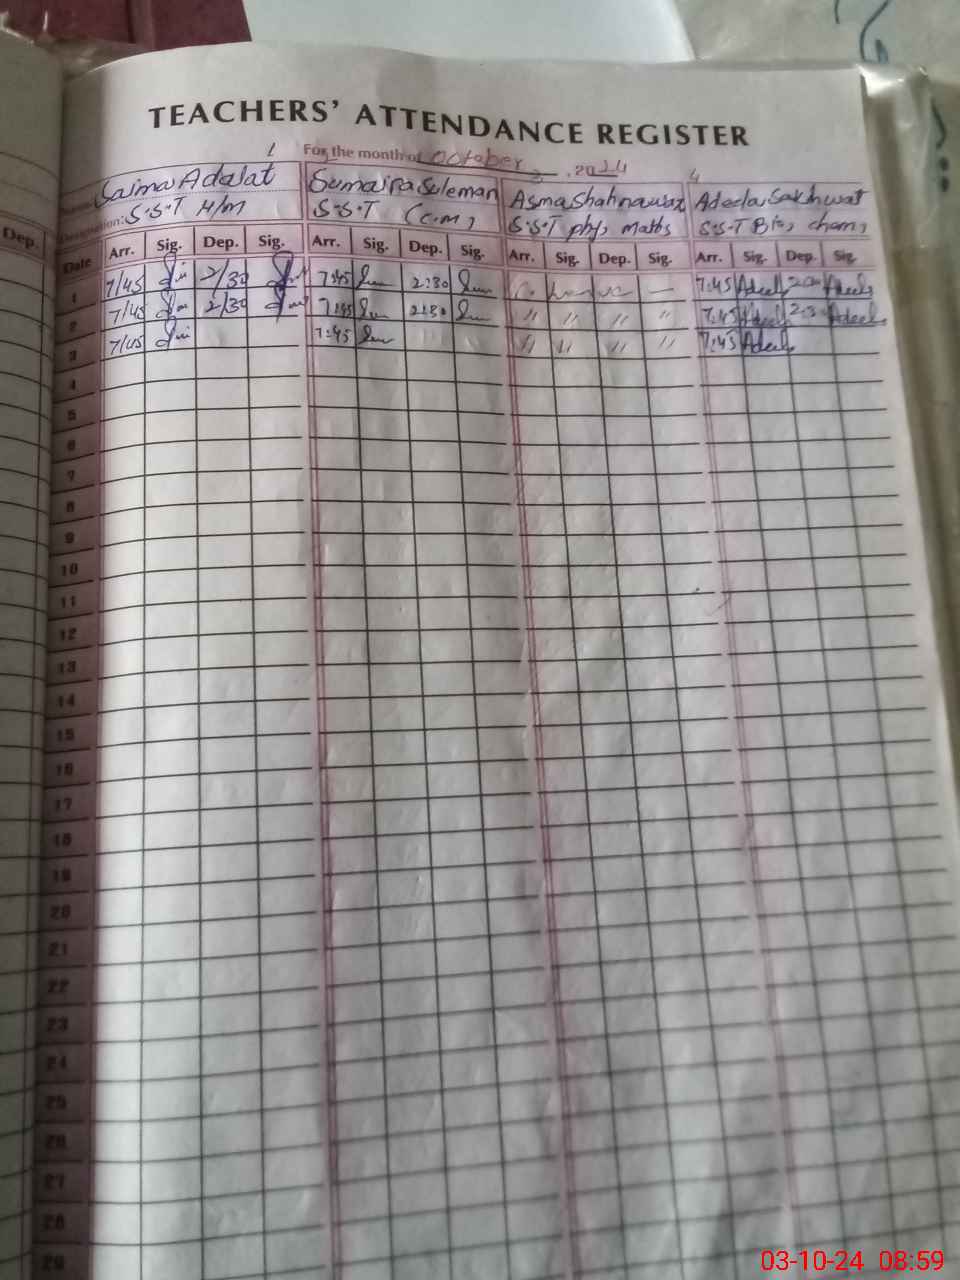 TEACHERS' ATTENDANCE REGISTER
For the month of October, 2024
1 3 4
Saima Adalat Sumaira Suleman Asma Shahnawaz Adeela Sakhwat
Designation: S.S.T H/M S.S.T (C.M) S.S.T phy, maths S.S.T Bio, chem,
Dep.
Date Arr. Sig. Dep. Sig. Arr. Sig. Dep. Sig. Arr. Sig. Dep. Sig. Arr. Sig. Dep. Sig.
1 7/45 2/30 7:45 2:30 — 7:45 Adeela Adeela
2 7/45 2/30 7:45 2:30 " " " " 7:45 Adeela Adeela
3 7/45 7:45 " " " " 7:45 Adeela
4
5
6
7
8
9
10
11
12
13
14
15
16
17
18
19
20
21
22
23
24
25
26
27
28
29
03-10-24 08:59